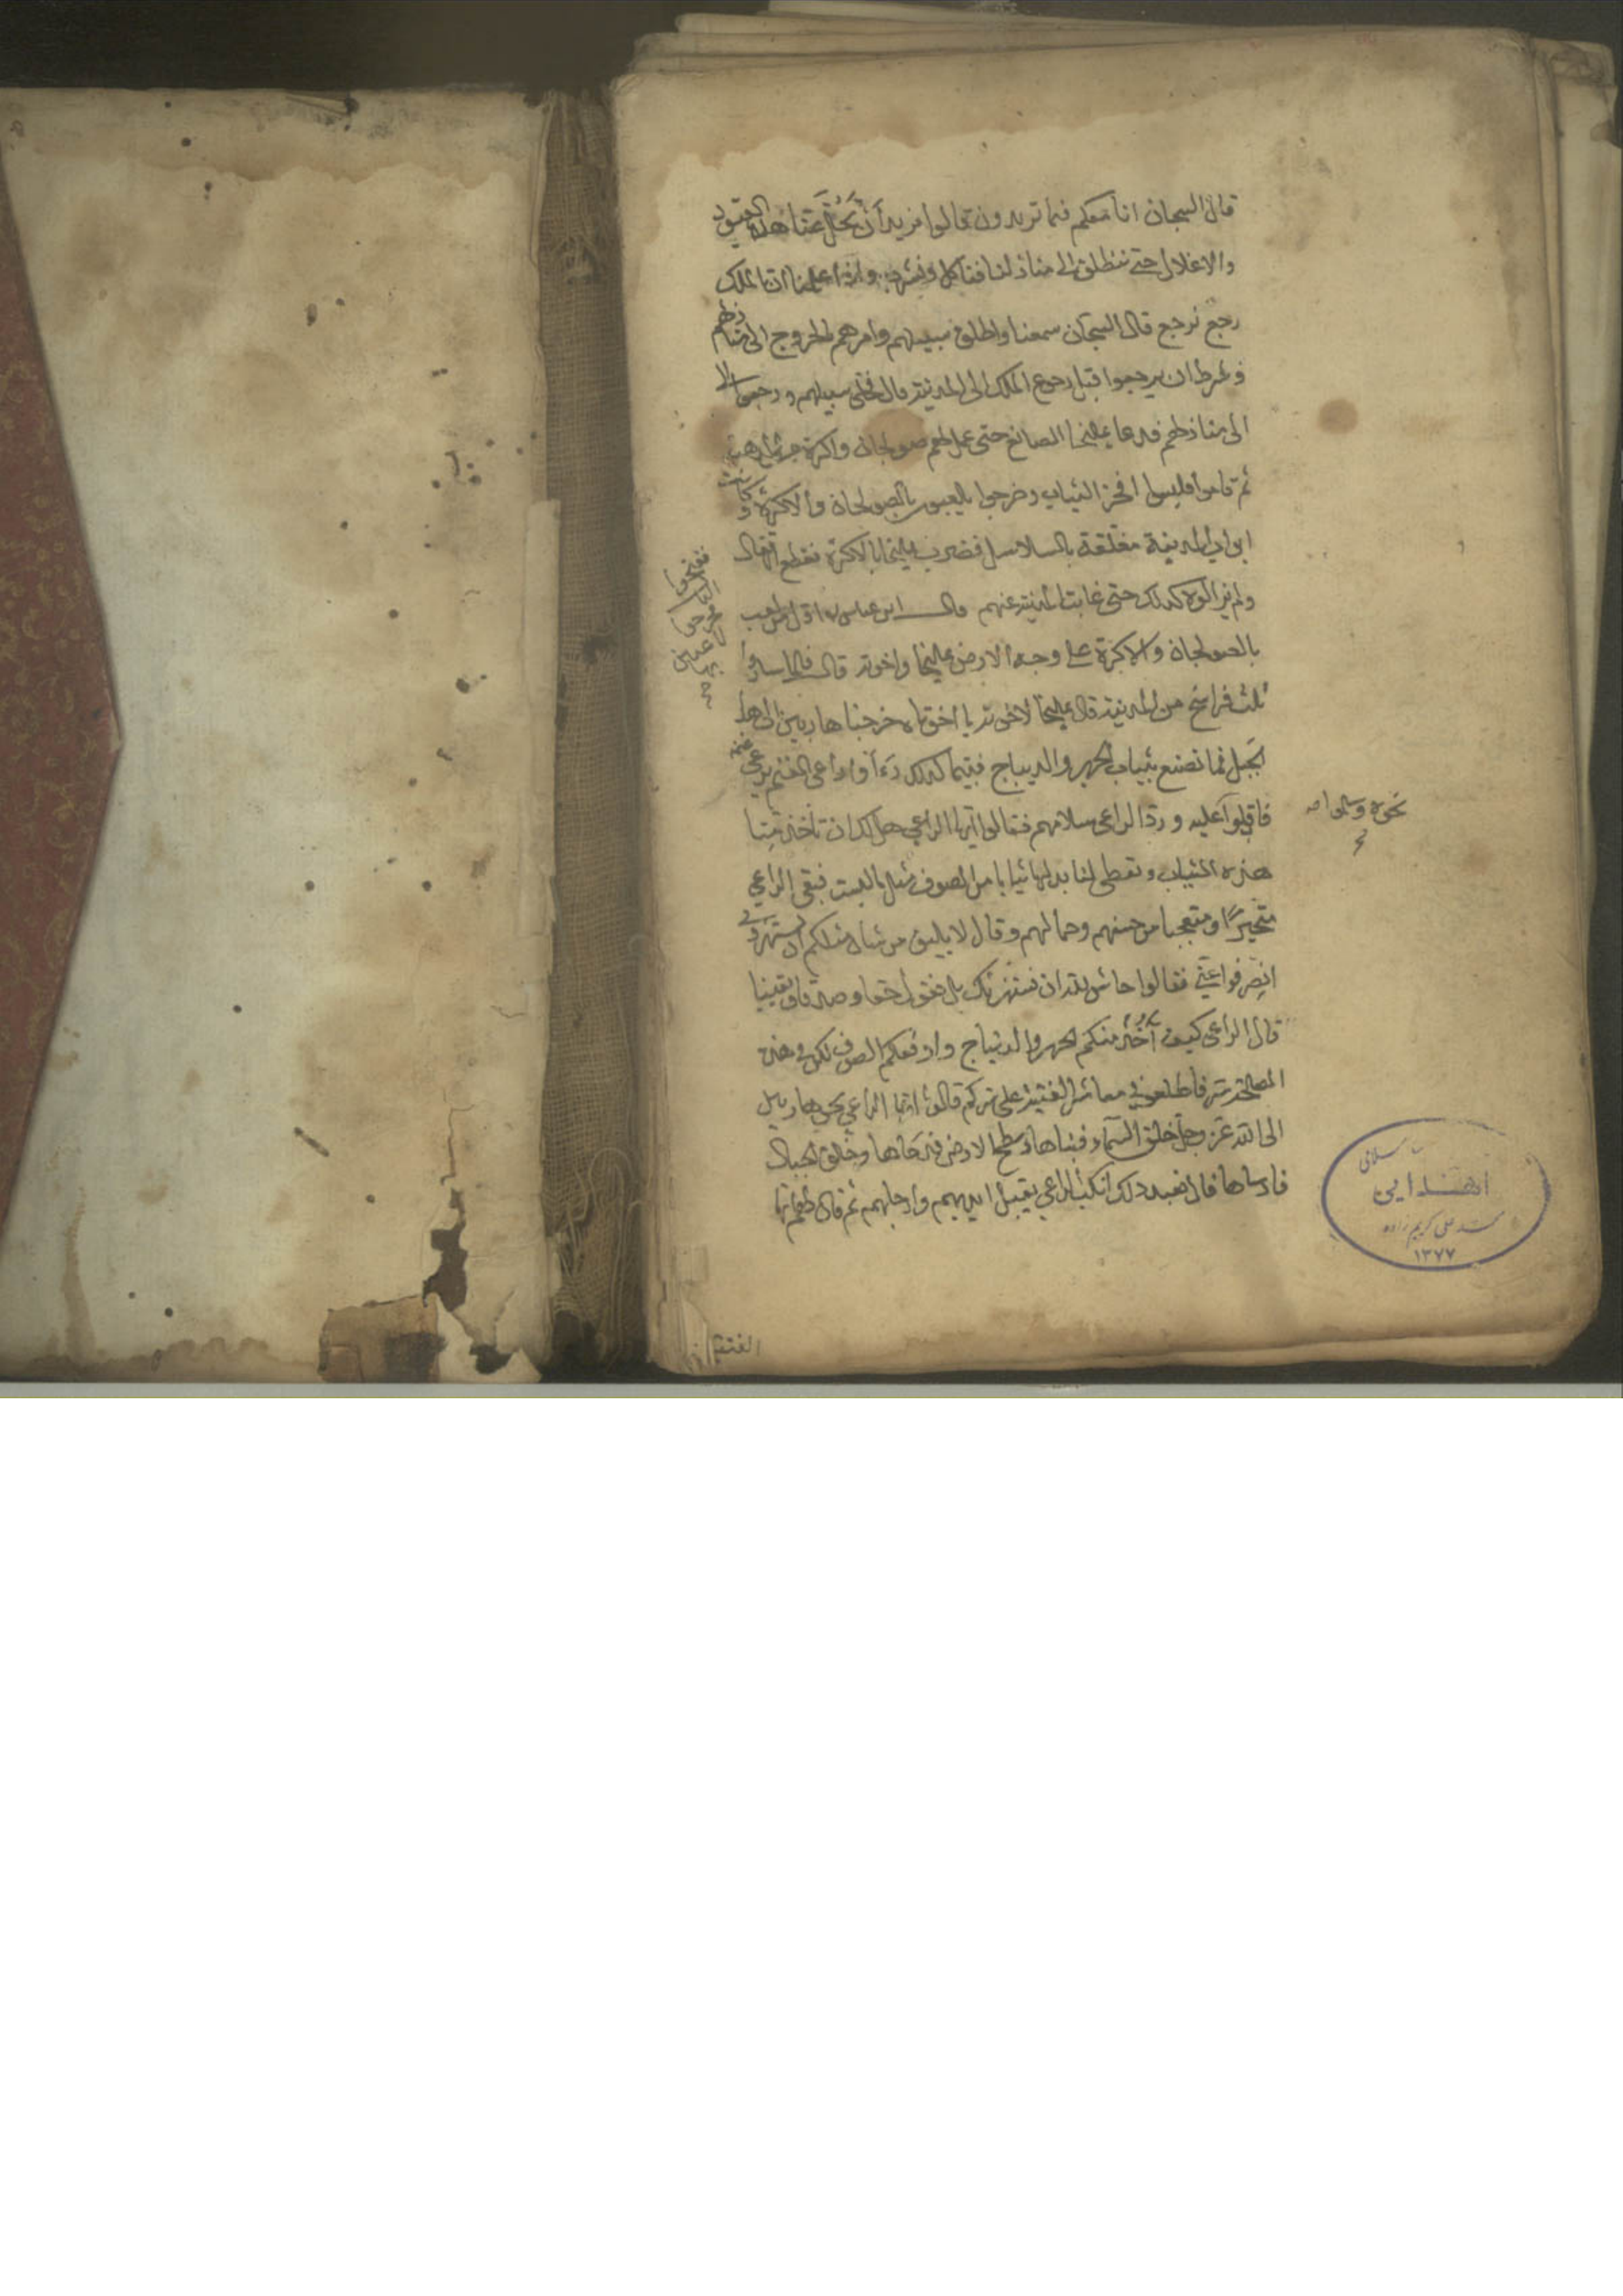 قال السجان انا معكم فما تريدون قالوا نريد أن تحل عنا هذه القيود
والاغلال حتى ننطلق الى منازلنا فنأكل ونشرب واذا علمنا ان الملك
رجع نرجع قال السجان سمعنا واطلق سبيلهم وامرهم بالخروج الى منازلهم
وشرط ان يرجعوا قبل رجوع الملك الى المدينة قال فخلى سبيلهم ورجعوا
الى منازلهم فدعا يمليخا الصائغ حتى عمل لهم صولجان واكرة من الذهب
ثم قاموا فلبسوا افخر الثياب وخرجوا يلعبون بالصولجان والاكرة وكانت
ابواب المدينة مغلقة بالسلاسل فضرب يمليخا بالاكرة فقطع اقفال
ولم يزالوا كذلك حتى غابت المدينة عنهم قال ابن عباس اول من لعب
بالصولجان والاكرة على وجه الارض يمليخا واخوته قال فلما ساروا
ثلث فراسخ من المدينة قال يمليخا لاخوته يا اخوتاه خرجنا هاربين الى هذا
الجبل فما نصنع بثياب الحرير والديباج فبينما كذلك رأوا راعى الغنم يرعى غنمه
فاقبلوا عليه ورد الراعى سلامهم فقالوا ايها الراعي هل لك ان تأخذ منا
هذه الثياب وتعطى لنا بدلها ثيابا من الصوف فبقى الراعي
متحيرًا ومتعجبا من حسنهم وجمالهم وقال لا يليق من شان مثلكم ان تستهزؤ
انصرفوا عني فقالوا حاش لله ان نستهزئك بل نقول حقا وصدقا ويقينا
قال الراعى كيف آخذ منكم الحرير والديباج وادفعكم الصوف لكن في هذه
المصلحة سر فاطلعوني معاشر الفتية على سركم قالوا ايها الراعي نحن هاربين
الى الله عز وجل خلق السماء فبناها وسطح الارض فدحاها وخلق الجبال
فارساها قال فعند ذلك انكب الراعي يقبل ايديهم وارجلهم ثم قال
فخرجوا
لاعبين
بها
نحوه
الفتية
اهدایی
سید علی کریم زاده
۱۳۷۷